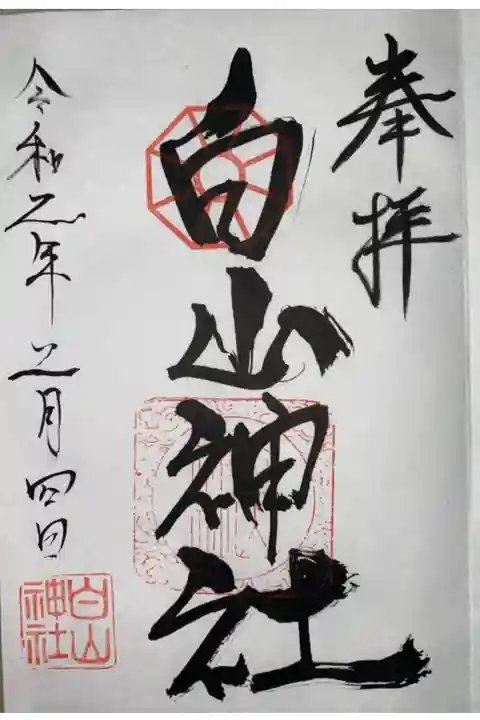 奉拝
白山神社
令和元年 月四日
白山
神社